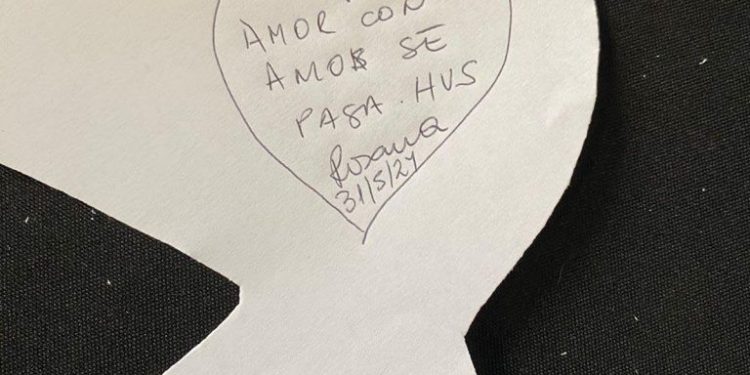 AMOR CON
AMOR SE
PAGA. HVS
Rosana
31/5/24